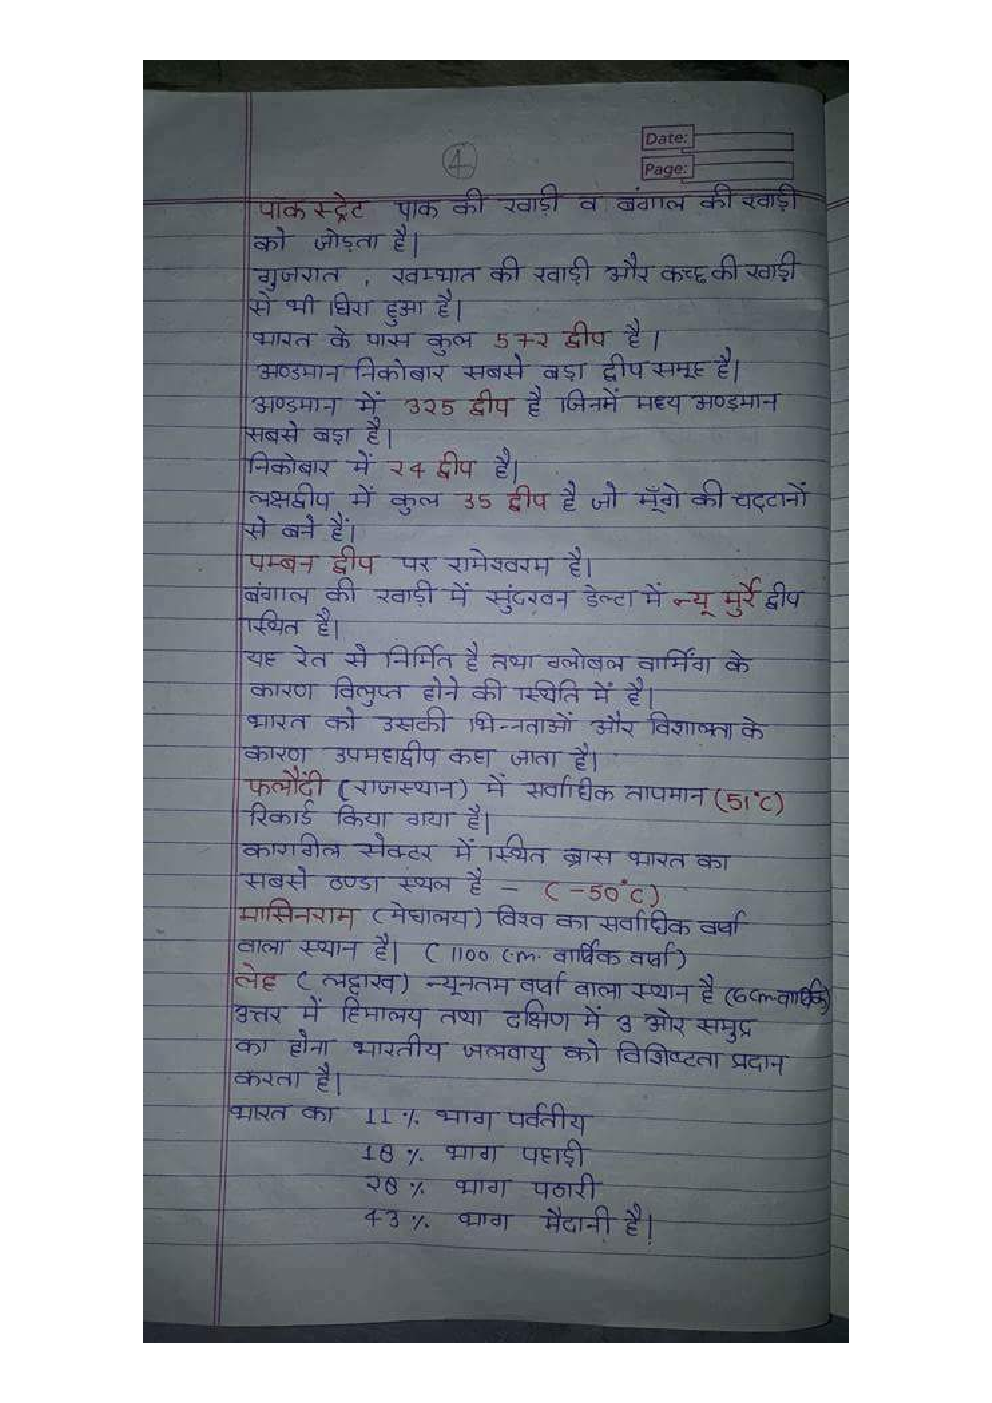 4
Date:
Page:
पाक स्ट्रेट पाक की खाड़ी व बंगाल की खाड़ी
को जोड़ता है।
गुजरात , खम्भात की खाड़ी और कच्छ की खाड़ी
से भी घिरा हुआ है।
भारत के पास कुल 572 द्वीप है ।
अण्डमान निकोबार सबसे बड़ा द्वीप समूह है।
अण्डमान में 325 द्वीप है जिनमें मध्य अण्डमान
सबसे बड़ा है।
निकोबार में 24 द्वीप है।
लक्षद्वीप में कुल 35 द्वीप है जो मूँगे की चट्टानों
से बने हैं।
पम्बन द्वीप पर रामेश्वरम है।
बंगाल की खाड़ी में सुंदरवन डेल्टा में न्यू मुर्रे द्वीप
स्थित है।
यह रेत से निर्मित है तथा ग्लोबल वार्मिंग के
कारण विलुप्त होने की स्थिति में है।
भारत को उसकी भिन्नताओं और विशालता के
कारण उपमहाद्वीप कहा जाता है।
फलौदी (राजस्थान) में सर्वाधिक तापमान (51°C)
रिकार्ड किया गया है।
कारगील सेक्टर में स्थित द्रास भारत का
सबसे ठण्डा स्थल है – (-50°C)
मासिनराम (मेघालय) विश्व का सर्वाधिक वर्षा
वाला स्थान है। (1100 cm. वार्षिक वर्षा)
लेह (लद्दाख) न्यूनतम वर्षा वाला स्थान है (6cm वार्षिक)
उत्तर में हिमालय तथा दक्षिण में 3 ओर समुद्र
का होना भारतीय जलवायु को विशिष्टता प्रदान
करता है।
भारत का 11% भाग पर्वतीय
18% भाग पहाड़ी
28% भाग पठारी
43% भाग मैदानी है।